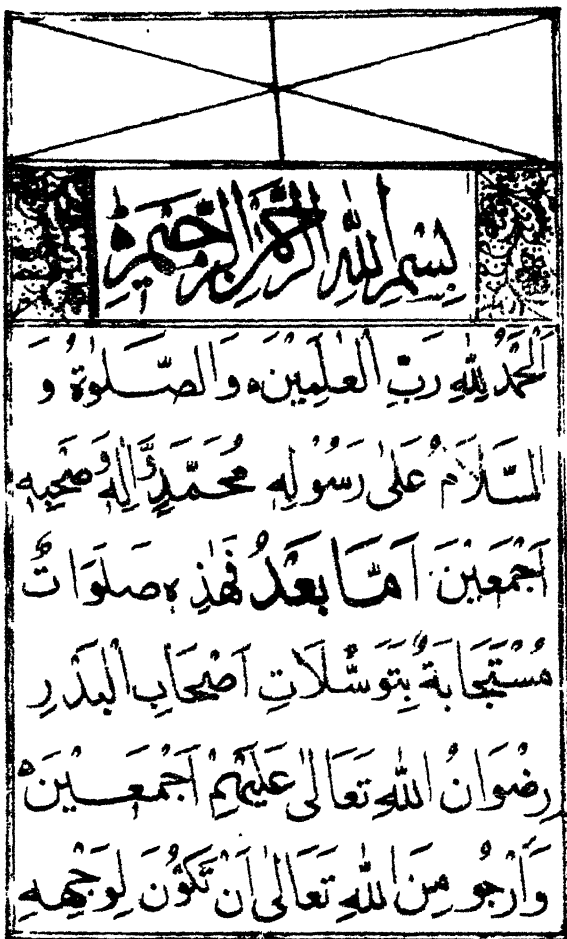 بِسْمِ اللّٰهِ الرَّحْمٰنِ الرَّحِيْمِ
اَلْحَمْدُ لِلّٰهِ رَبِّ الْعٰلَمِيْنَ ۰ وَالصَّلٰوةُ وَ
السَّلَامُ عَلٰى رَسُوْلِهٖ مُحَمَّدٍ وَّاٰلِهٖ وَصَحْبِهٖ
اَجْمَعِيْنَ اَمَّا بَعْدُ فَهٰذِهٖ صَلَوَاتٌ
مُسْتَجَابَةٌ بِتَوَسُّلَاتِ اَصْحَابِ الْبَدْرِ
رِضْوَانُ اللّٰهِ تَعَالٰى عَلَيْهِمْ اَجْمَعِيْنَ
وَاَرْجُو مِنَ اللّٰهِ تَعَالٰى اَنْ تَكُوْنَ لِوَجْهِهٖ